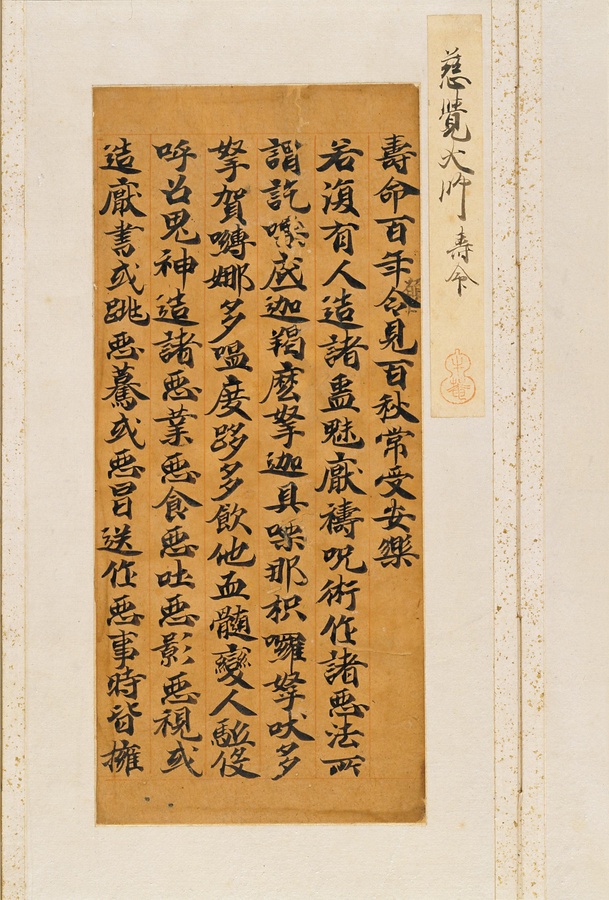 慈覺大師 壽命
壽命百年令見百秋常受安樂
若復有人造諸蠱魅厭禱呪術作諸惡法所
謂訖嘌底迦羯麼拏迦具嘌那枳囉拏吠多
拏賀嚩娜多嗢度跢多飲他血髓變人駈役
呼召鬼神造諸惡業惡食惡吐惡影惡視或
造厭書或跳惡驀或惡冒送作惡事時皆擁